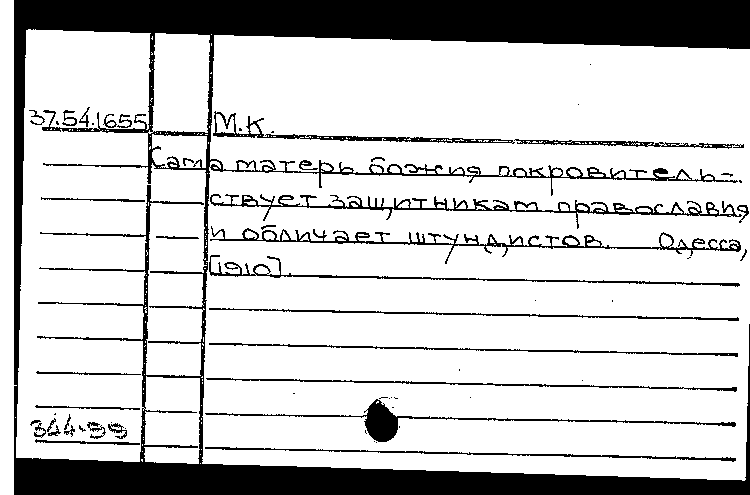 37.54.1655 М.К.
Сама матерь божия покровитель-
ствует защитникам православия
и обличает штундистов. Одесса,
[1910].
344-99